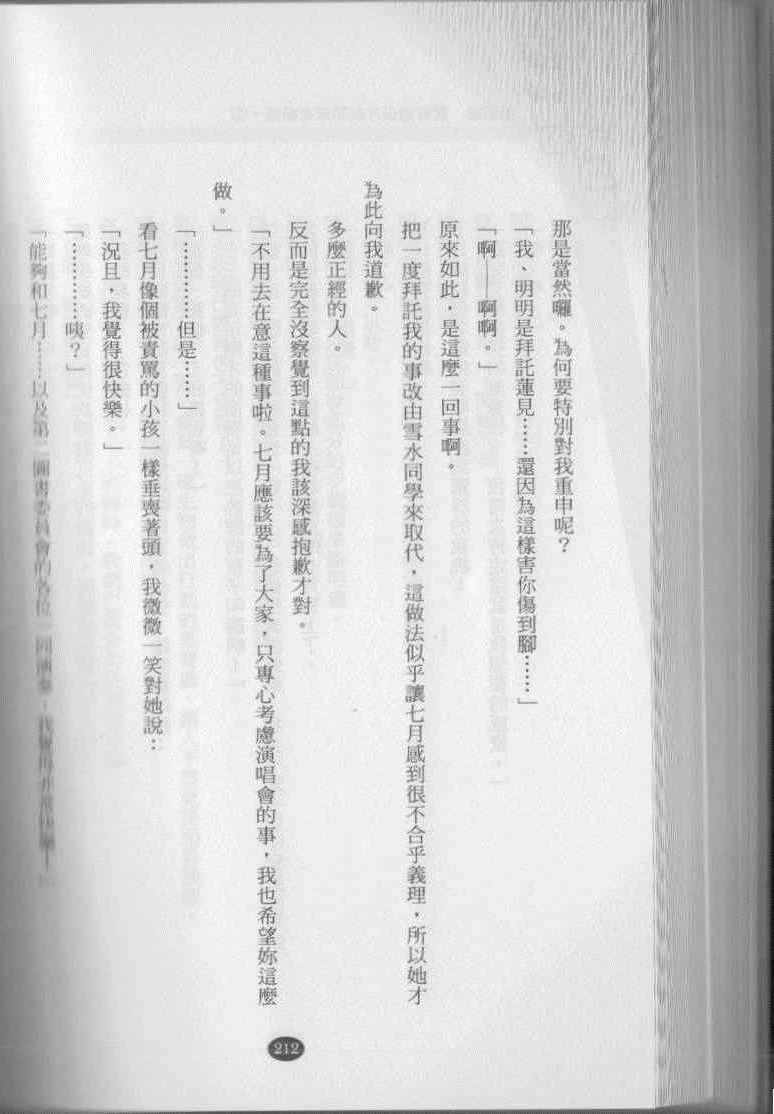 那是當然囉。為何要特別對我重申呢？
「我、明明是拜託蓮見……還因為這樣害你傷到腳……」
「啊——啊啊。」
原來如此，是這麼一回事啊。
把一度拜託我的事改由雪水同學來取代，這做法似乎讓七月感到很不合乎義理，所以她才
為此向我道歉。
多麼正經的人。
反而是完全沒察覺到這點的我該深感抱歉才對。
「不用去在意這種事啦。七月應該要為了大家，只專心考慮演唱會的事，我也希望妳這麼
做。」
「…………但是……」
看七月像個被責罵的小孩一樣垂喪著頭，我微微一笑對她說：
「況且，我覺得很快樂。」
「…………咦？」
「能夠和七月……以及第一圖書委員會的各位一同演奏，我覺得非常
212